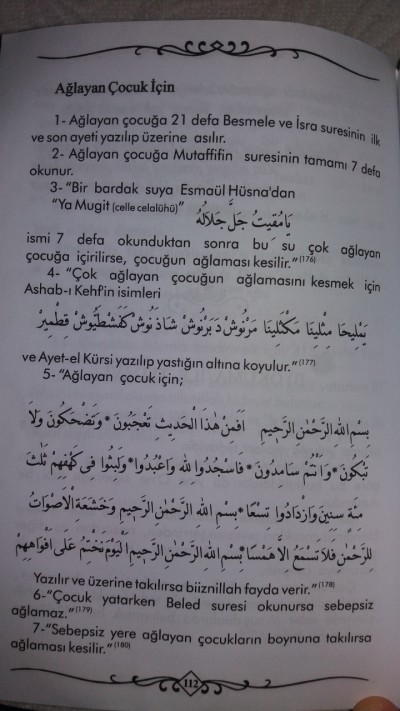 Ağlayan Çocuk İçin
1- Ağlayan çocuğa 21 defa Besmele ve İsra suresinin ilk
ve son ayeti yazılıp üzerine asılır.
2- Ağlayan çocuğa Mutaffifin suresinin tamamı 7 defa
okunur.
3- "Bir bardak suya Esmaül Hüsna'dan
"Ya Mugit (celle celalühü)" يَا مُقِيتُ جَلَّ جَلَالُهُ
ismi 7 defa okunduktan sonra bu su çok ağlayan
çocuğa içirilirse, çocuğun ağlaması kesilir."(176)
4- "Çok ağlayan çocuğun ağlamasını kesmek için
Ashab-ı Kehf'in isimleri
يَمْلِيخَا مِثْلِينَا مَكْثَلِينَا مَرْنُوشْ دَبَرْنُوشْ شَاذَنُوشْ كَفَشْطَطَيُّوشْ قِطْمِيرْ
ve Ayet-el Kürsi yazılıp yastığın altına koyulur."(177)
5- "Ağlayan çocuk için;
بِسْمِ اللهِ الرَّحْمٰنِ الرَّحِيمِ اَفَمِنْ هٰذَا الْحَدِيثِ تَعْجَبُونَ * وَتَضْحَكُونَ وَلَا
تَبْكُونَ * وَاَنْتُمْ سَامِدُونَ * فَاسْجُدُوا لِلّٰهِ وَاعْبُدُوا * وَلَبِثُوا فِى كَهْفِهِمْ ثَلٰثَ
مِئَةٍ سِنِينَ وَازْدَادُوا تِسْعًا * بِسْمِ اللهِ الرَّحْمٰنِ الرَّحِيمِ وَخَشَعَةِ الْاَصْوَاتُ
لِلرَّحْمٰنِ فَلَا تَسْمَعُ اِلَّا هَمْسًا * بِسْمِ اللهِ الرَّحْمٰنِ الرَّحِيمِ اَلْيَوْمَ نَخْتِمُ عَلٰى اَفْوَاهِهِمْ
Yazılır ve üzerine takılırsa biiznillah fayda verir."(178)
6-"Çocuk yatarken Beled suresi okunursa sebepsiz
ağlamaz."(179)
7-"Sebepsiz yere ağlayan çocukların boynuna takılırsa
ağlaması kesilir."(180)
112